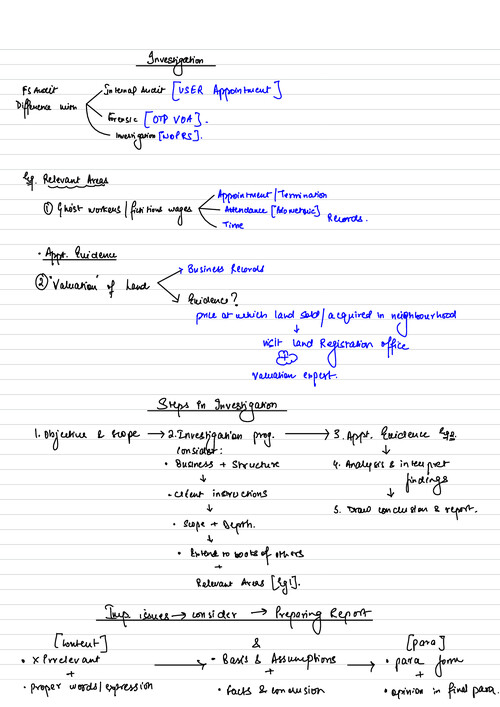 Investigation
FS Audit
Difference with
Internal Audit [USER Appointment]
Forensic [OTP VOA].
Investigation [WOPRS].
Eg. Relevant Areas
① Ghost workers/fictitious wages
Appointment/Termination
Attendance [Biometric] Records.
Time
• Appt. Evidence
② "Valuation" of Land
Business Records
Evidence?
price at which land sold/acquired in neighbourhood
↓
visit Land Registration office
+
valuation expert.
Steps in Investigation
1. Objective & scope → 2. Investigation prog. → 3. Appt. Evidence
consider:
• Business + Structure
↓
• client instructions
↓
• Scope + Depth.
↓
• Extend to books of others
+
Relevant Areas [Eg1].
↓
4. Analysis & interpret
findings
↓
5. Draw conclusion & report.
Imp issues → consider → Preparing Report
[content] & [para]
• × Irrelevant → • Basis & Assumptions → • para form
+ + +
• proper words/expression • Facts & conclusion • opinion in final para.